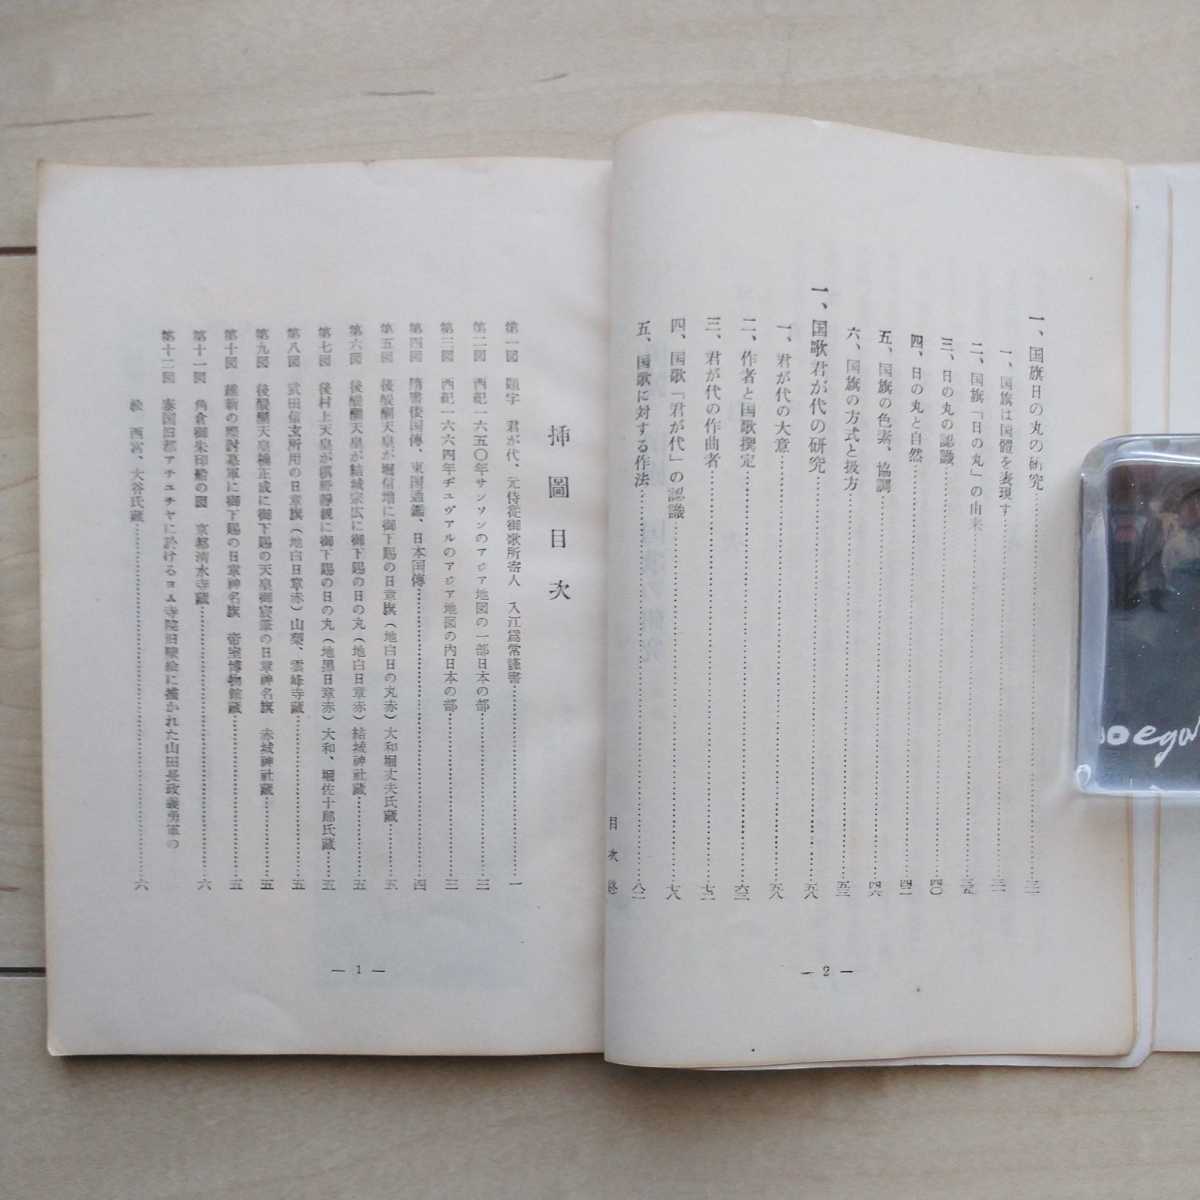 一、国旗日の丸の研究…………三一
一、国旗は国體を表現す…………三一
二、国旗「日の丸」の由来…………
三、日の丸の認識…………四〇
四、日の丸と自然…………四一
五、国旗の色素、協調…………四六
六、国旗の方式と扱方…………五三
一、国歌君が代の研究…………五八
一、君が代の大意…………五八
二、作者と国歌撰定…………六三
三、君が代の作曲者…………七二
四、国歌「君が代」の認識…………七八
五、国歌に対する作法…………八二
目次終
— 2 —
挿圖目次
第一図 題字 君が代、元侍従御歌所寄人 入江爲常謹書…………一
第二図 西紀一六五〇年サンソンのアジア地図の一部日本の部…………三
第三図 西紀一六六四年ヂュヴアルのアジア地図の内日本の部…………三
第四図 隋書倭国傳、東国通鑑、日本国傳…………四
第五図 後醍醐天皇が堀信増に御下賜の日章旗(地白日の丸赤)大和堀丈夫氏藏…………五
第六図 後醍醐天皇が結城宗広に御下賜の日の丸(地白日章赤)結城神社藏…………五
第七図 後村上天皇が御下賜の日の丸(地黒日章赤)大和、堀佐十郎氏藏…………五
第八図 武田信玄所用の日章旗(地白日章赤)山梨、雲峰寺藏…………五
第九図 後醍醐天皇楠正成に御下賜の天皇御宸筆の日章神名旗 赤城神社藏…………五
第十図 維新の際討幕軍に御下賜の日章神名旗 帝室博物館藏…………五
第十一図 角倉御朱印船の図 京都清水寺藏…………六
第十二図 泰国旧都アチユチヤに於けるヨム寺院旧壁絵に描かれた山田長政義勇軍の
絵 西宮、大谷氏藏…………六
— 1 —